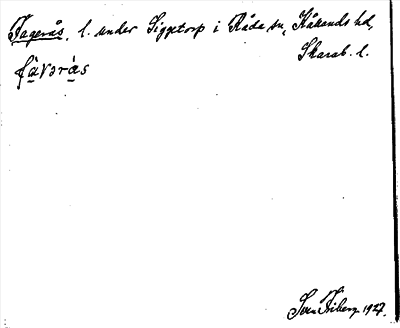 Fagerås, l. under Siggetorp i Råda sn, Kållands hd,
Skarab. l.
fàvərås
Sven Friberg 1927.